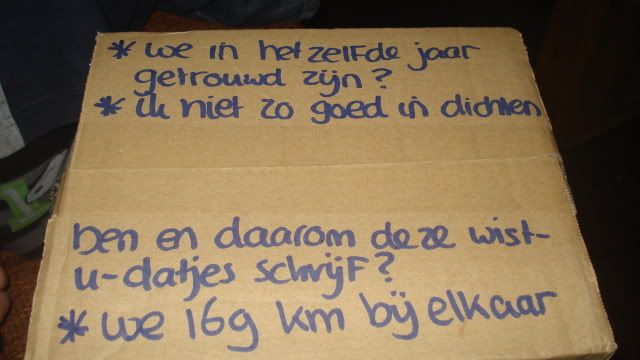 * we in het zelfde jaar
getrouwd zijn?
* ik niet zo goed in dichten
ben en daarom deze wist-
u-datjes schrijf?
* we 169 km bij elkaar